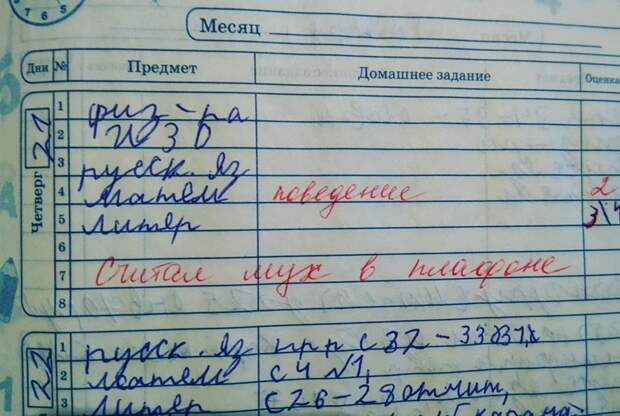 7 6 5
Месяц
Дни № Предмет Домашнее задание Оценка
Четверг 21
1 физ-ра
2 ИЗО
3 русск. яз
4 матем поведение 2
5 литер 3\4
6
7 Считал мух в плафоне
8
22
1 русск. яз с 32-33
2 матем с 4 №1,
3 литер с 26-28 отчит,